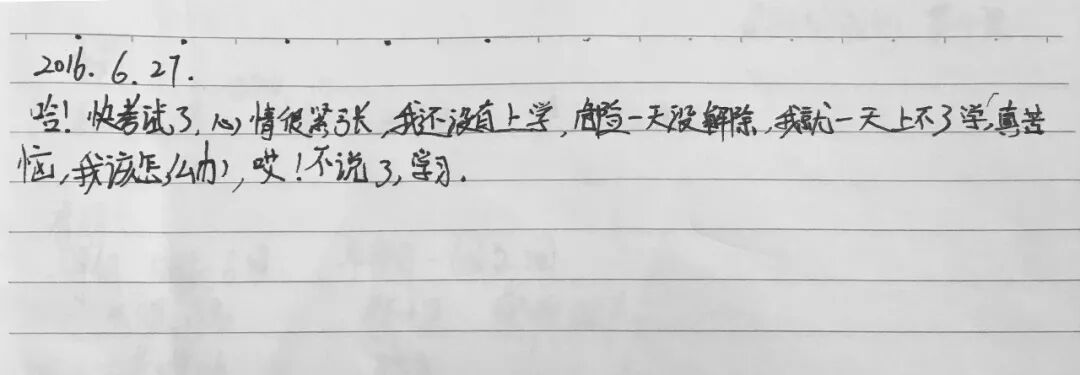 2016.6.27.
哈！快考试了，心情很紧张，我还没有上学，危险一天没解除，我就一天上不了学，真苦
恼，我该怎么办，哎！不说了，学习．